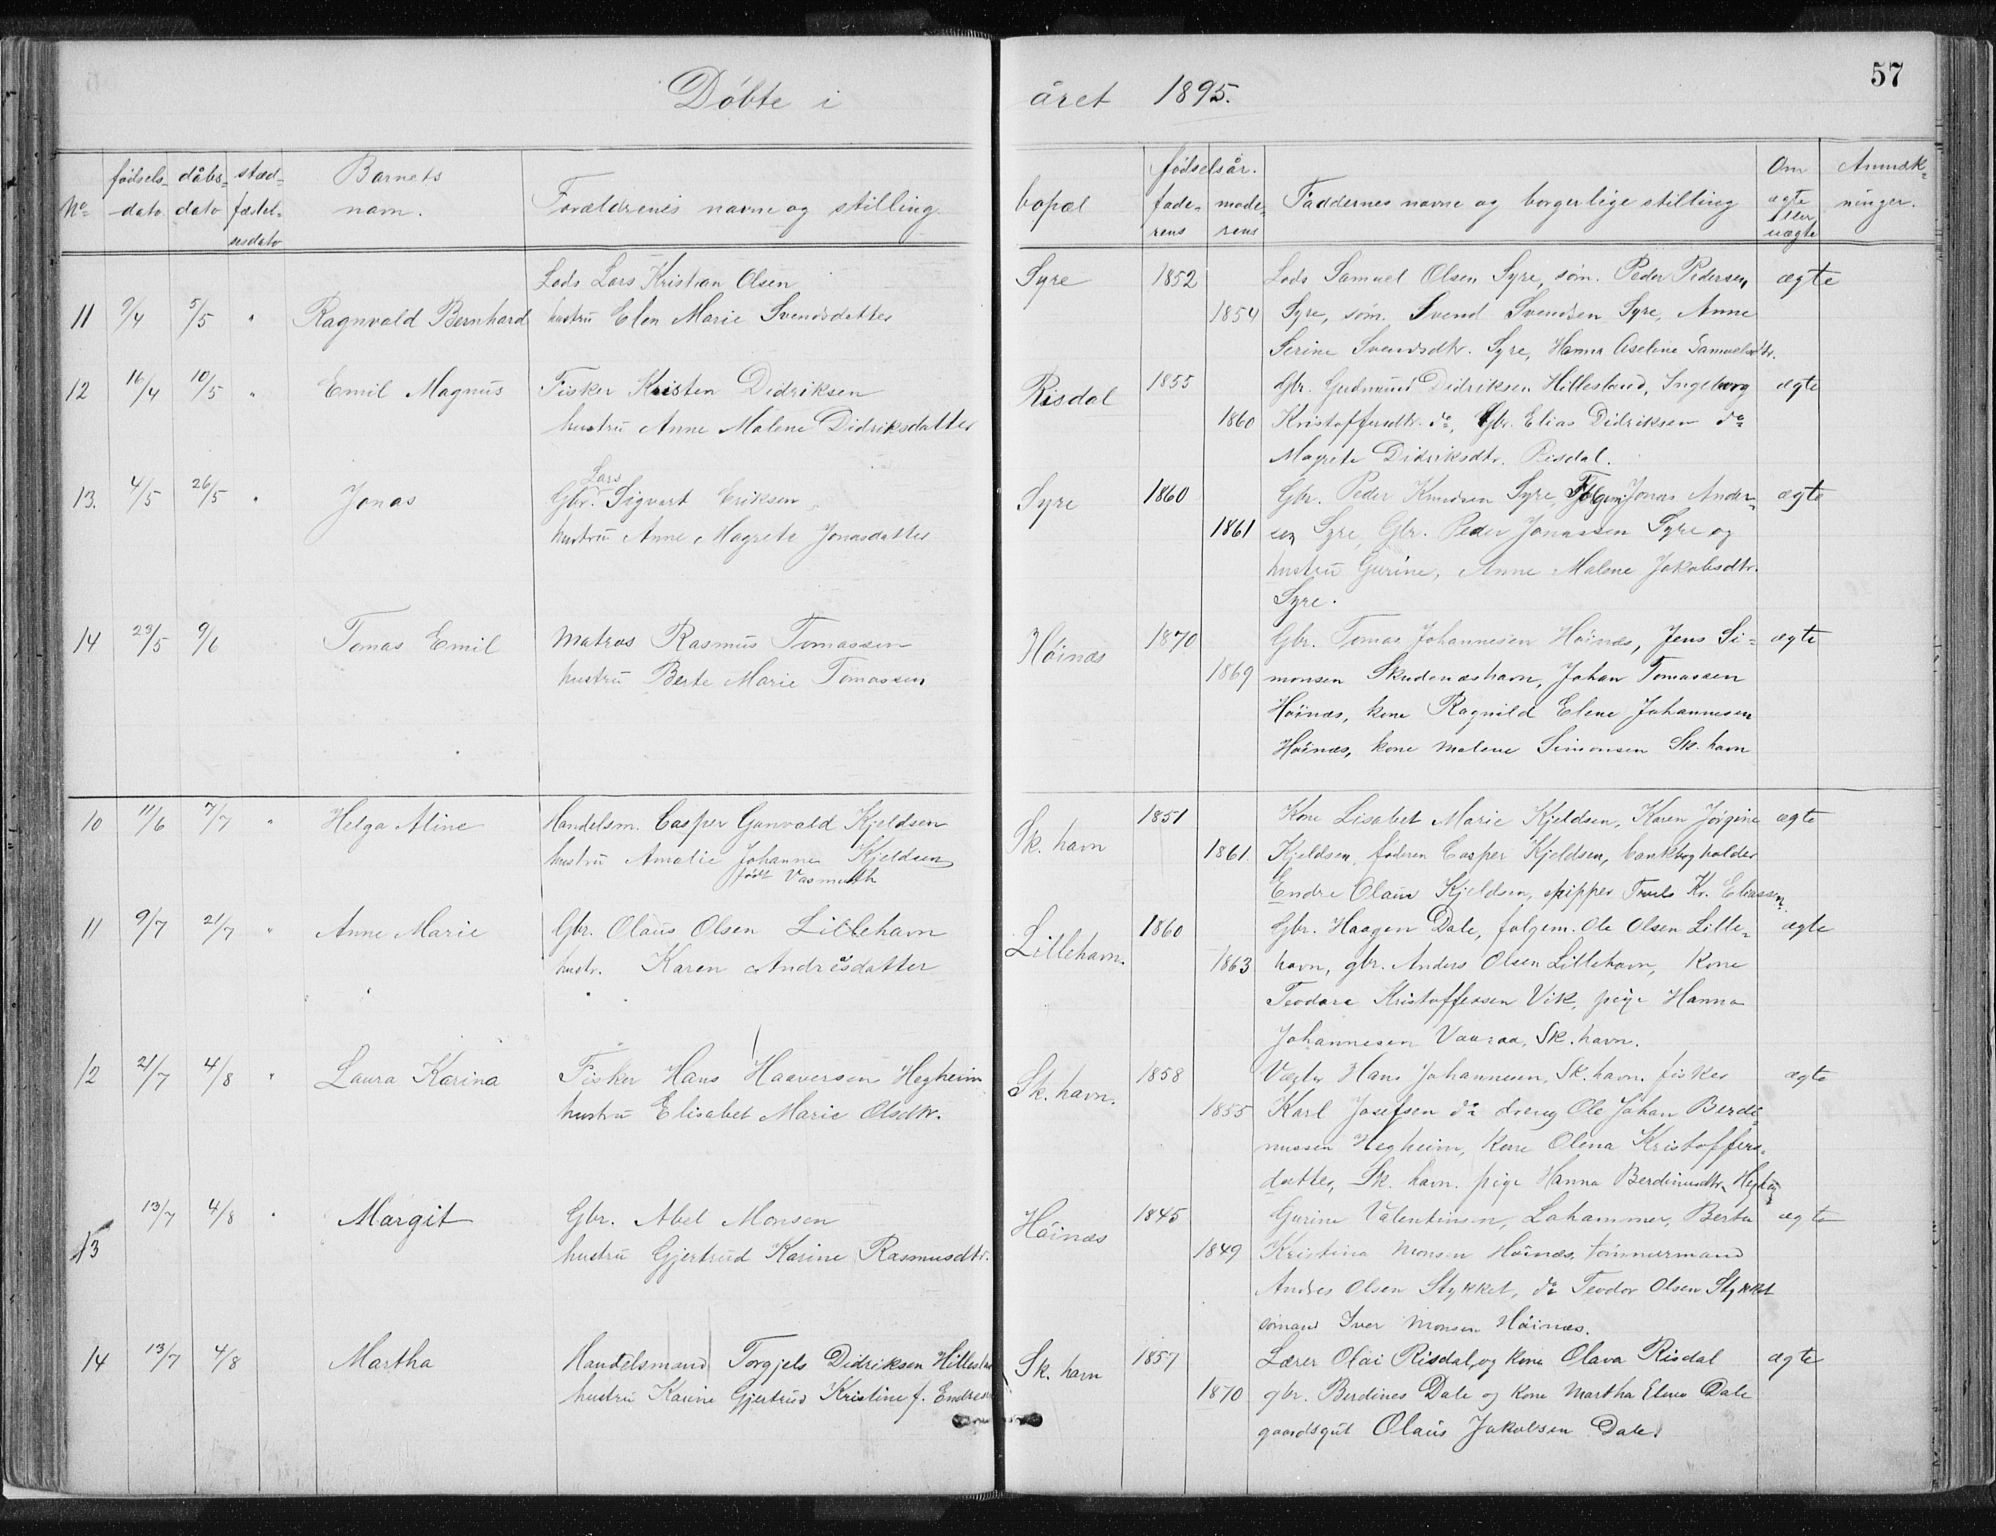 57
Döbte i året 1895.
No fødsels-dato dåbs-dato stad-fæstel-sesdato Barnets navn. Forældrenes navne og stilling bopæl fødselsår. faderens moderens Faddernes navne og borgerlige stilling Om ægte eller uægte Anmærk-ninger.
11 2/4 5/5 " Ragnvald Bernhard
Lods Lars Kristian Olsen
hustru Elen Marie Svendsdatter
Syre 1852 1854
Lods Samuel Olsen Syre, søm. Peder Pedersen ægte
Syre, søm. Svend Svendsen Syre, Anne
Serine Svendsdtr. Syre, Hanna Aseline Samuelsdtr.
12 16/4 10/5 " Emil Magnus
Fisker Kristen Didriksen
hustru Anne Malene Didriksdatter
Risdal 1855 1860
Gbr. Gudmund Didriksen Hillesland, Ingeborg ægte
Kristoffersdtr. do, Gbr. Elias Didriksen do
Magrete Didriksdtr. Risdal.
13. 4/5 26/5 " Jonas
Lars
Gbr. Sigvart Eriksen
hustru Anne Magrete Jonasdatter
Syre 1860 1861
Gbr. Peder Knudsen Syre, Folgem. Jonas Ander- ægte
sen Syre, Gbr. Peder Jonassen Syre og
hustru Gurine, Anne Malene Jakobsdtr.
Syre.
14 23/5 9/6 Tomas Emil
Matros Rasmus Tomassen
hustru Berte Marie Tomassen
Höinæs 1870 1869
Gbr. Tomas Johannesen Höinæs, Jens Si- ægte
monsen Skudenæshavn, Johan Tomassen
Höinæs, kone Ragnild Elene Johannesen
Höinæs, kone Malene Simonsen Sk. havn
10 11/6 7/7 " Helga Aline
Handelsm. Casper Gunvald Kjeldsen
hustru Amalie Johanne Kjeldsen
født Vasmuth
Sk. havn 1851 1861
Kone Lisabet Marie Kjeldsen, Karen Jörgine ægte
Kjeldsen, faderen Casper Kjeldsen, bankbogholder
Endre Olaus Kjeldsen, skipper Truls Kr. Eliassen.
11 9/7 21/7 " Anne Marie
Gbr. Olaus Olsen Lillehavn
hustr. Karen Andreasdatter
Lillehavn. 1860 1863
Gbr. Haagen Dale, folgem. Ole Olsen Lille- ægte
havn, gbr. Anders Olsen Lillehavn, Kone
Teodora Kristoffersen Vik, pige Hanna
Johannesen Vaaraa, Sk. havn.
12 21/7 4/8 " Laura Karina
Fisker Hans Haaversen Hegheim
hustru Elisabet Marie Olsdtr.
Sk. havn. 1858 1855
Hans Johannesen, Sk. havn. fisker ægte
Karl Josefsen do dreng Ole Johan Berdi-
nussen Hegheim, Kone Olena Kristoffers-
datter, Sk. havn. pige Hanna Berdinusdtr.
13 13/7 4/8 " Margit
Gbr. Abel Monsen
hustru Gjertrud Karine Rasmusdtr.
Höinæs 1845 1849
Gurine Valentinsen, Lahammer, Berta ægte
Kristina Monsen Höinæs, tömmermand
Andres Olsen Stykket, do Teodor Olsen Stykket
sömand Iver Monsen Höinæs.
14 13/7 4/8 Martha
Handelsmand Torgjels Didriksen
hustru Karine Gjertrud Kristine f.
Sk. havn 1857 1870
Lærer Olai Risdal, og kone Olava Risdal ægte
gbr. Berdines Dale og kone Martha Elene Dale
gaardsgut Olaus Jakobsen Dale.